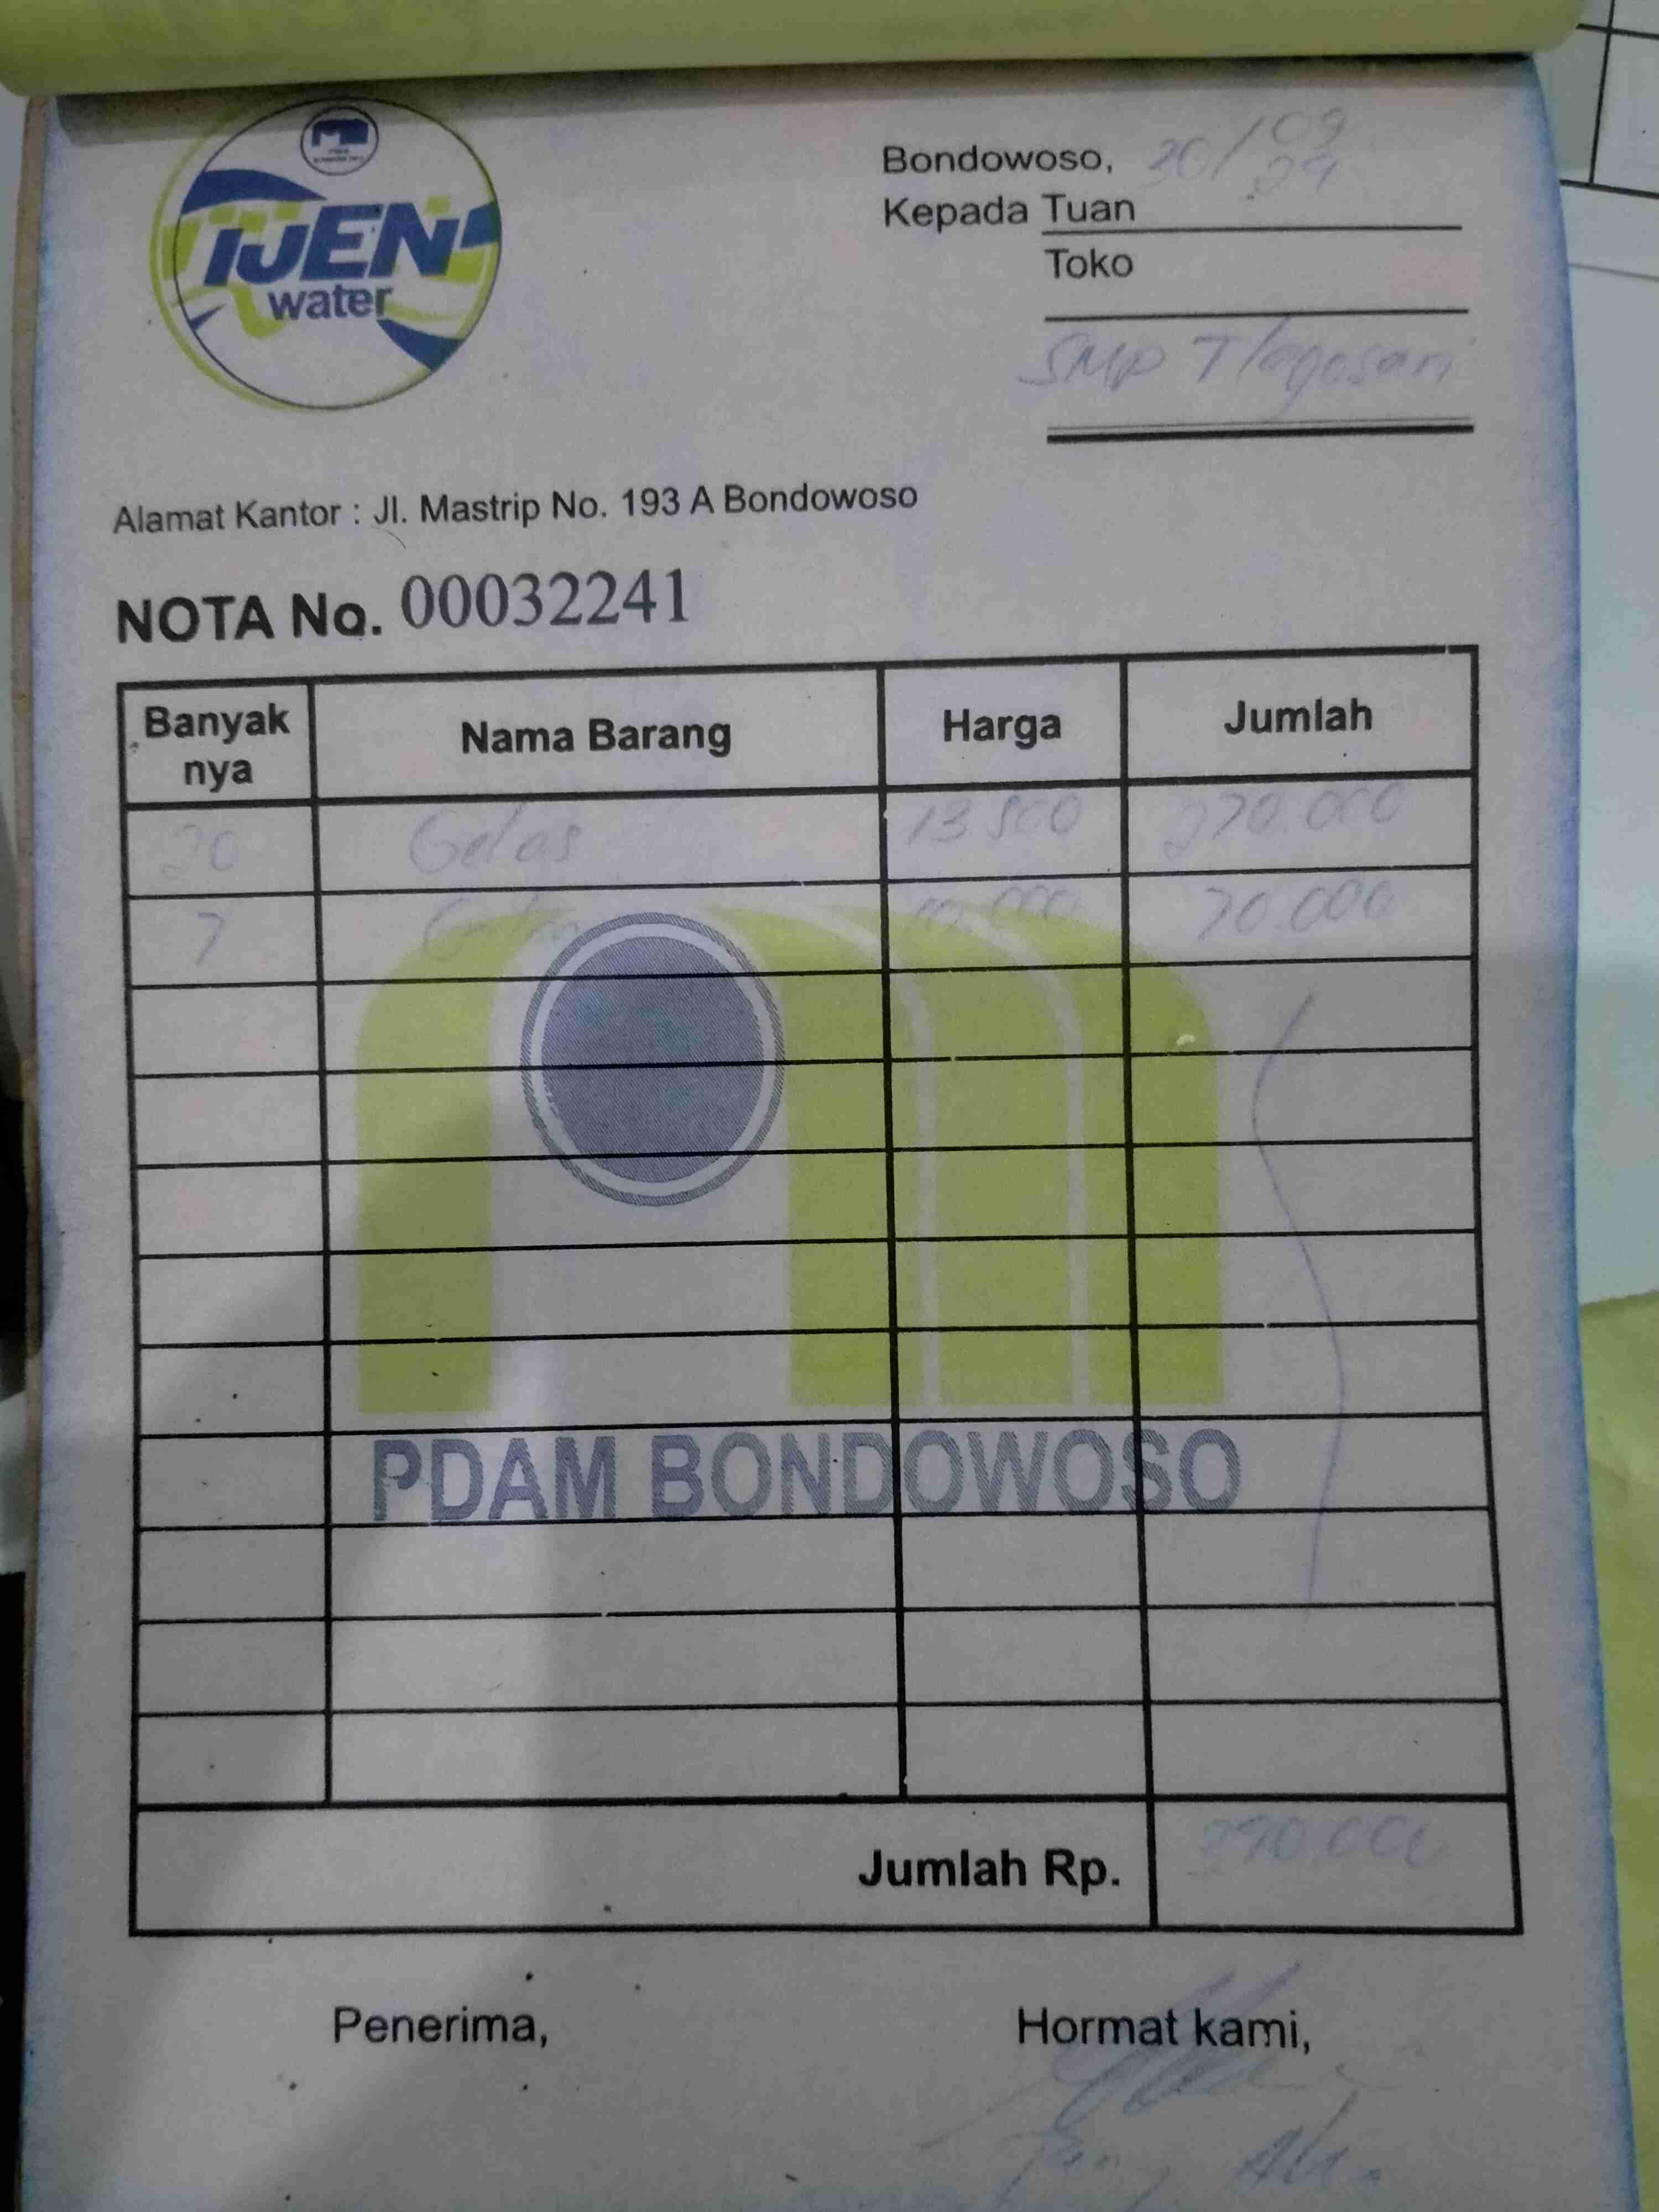 IJEN
water
Bondowoso, 30/09
24
Kepada Tuan
Toko
SMP Tlogosari
Alamat Kantor : Jl. Mastrip No. 193 A Bondowoso
NOTA No. 00032241
Banyak nya Nama Barang Harga Jumlah
20 Gelas 13 500 270.000
7 10.000 70.000
PDAM BONDOWOSO
Jumlah Rp. 340.000
Penerima, Hormat kami,